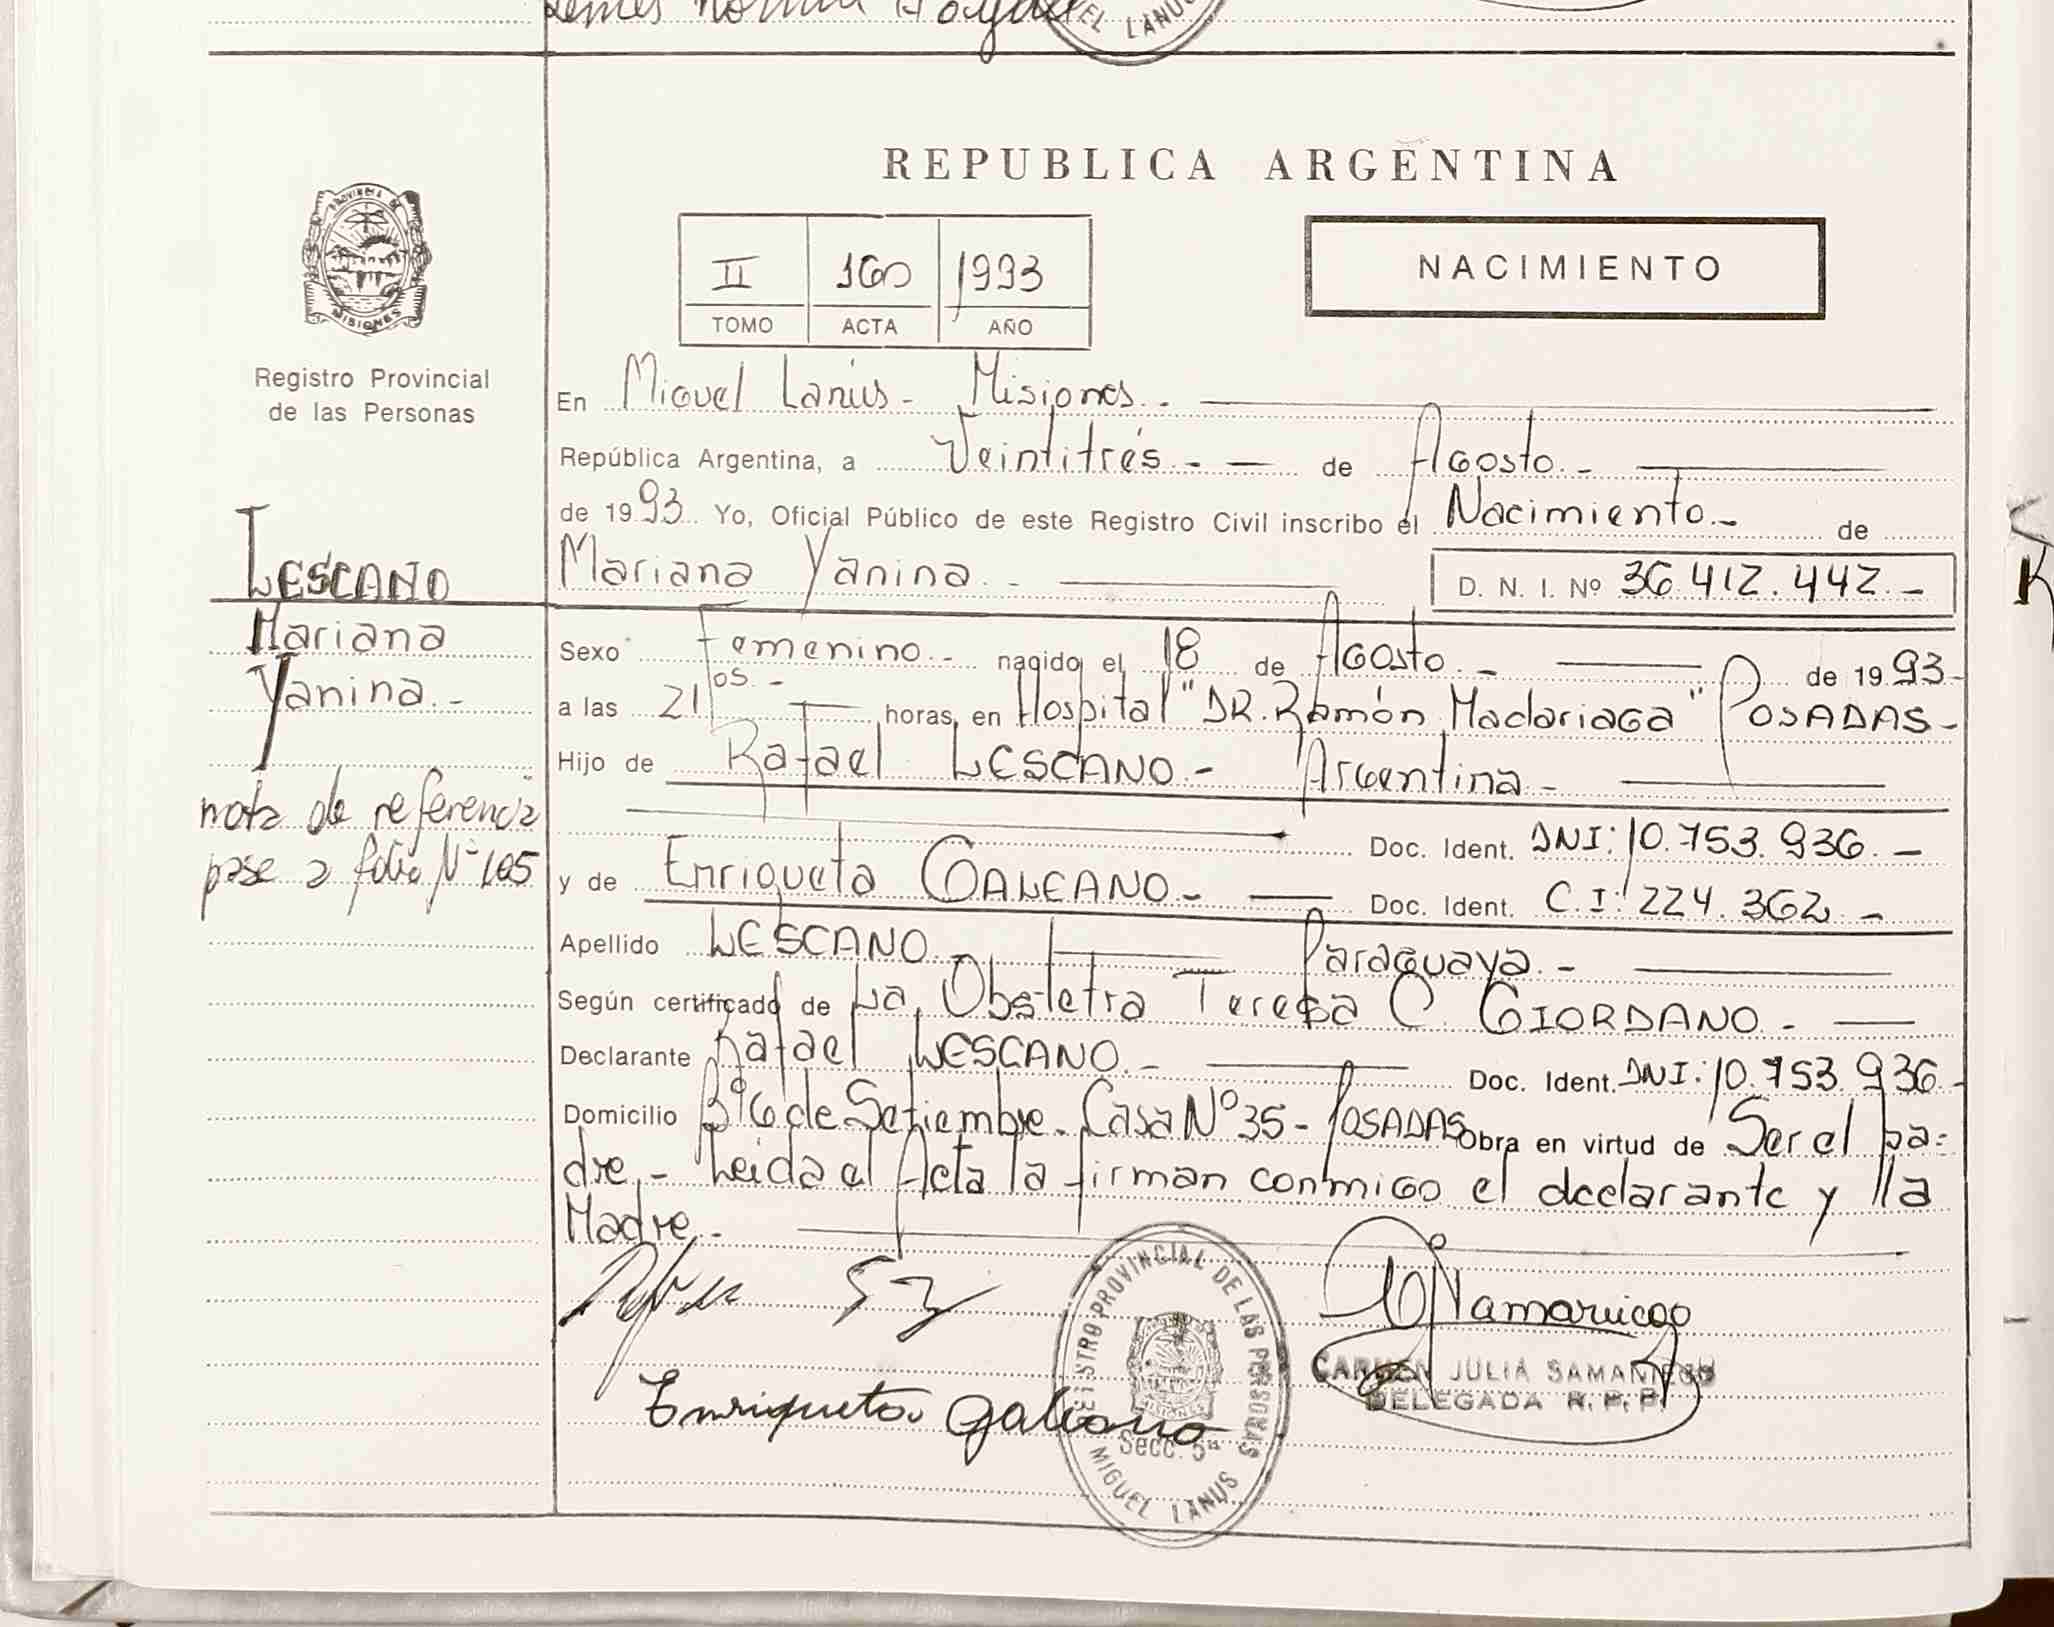 REPUBLICA ARGENTINA
PROVINCIA DE
MISIONES
Registro Provincial
de las Personas
II 160 1993
TOMO ACTA AÑO
NACIMIENTO
En Miguel Lanús - Misiones.-
República Argentina, a Veintitrés.- de Agosto.-
de 1993 Yo, Oficial Público de este Registro Civil inscribo el Nacimiento.- de
Mariana Yanina.- D. N. I. Nº 36.412.442.-
LESCANO
Mariana
Yanina.-
nota de referencia
pase a folio Nº 105
Sexo Femenino.- nacido el 18 de Agosto.- de 1993.-
a las 21 05.- horas, en Hospital "DR. Ramón Madariaga" POSADAS-
Hijo de Rafael LESCANO.- Argentina.-
Doc. Ident. DNI: 10.753.936.-
y de Enriqueta GALEANO.- Doc. Ident. C.I: 224.362.-
Apellido LESCANO.- Paraguaya.-
Según certificado de La Obstetra Teresa C. GIORDANO.-
Declarante Rafael LESCANO.- Doc. Ident. DNI: 10.753.936.-
Domicilio Bº 6 de Setiembre. Casa Nº 35 - POSADAS Obra en virtud de Ser el pa-
dre.- Leida el Acta la firman conmigo el declarante y la
Madre.-
Enriqueta Galeano
REGISTRO PROVINCIAL DE LAS PERSONAS
Secc. 5ª
MIGUEL LANUS
CARMEN JULIA SAMANIEGO
DELEGADA R. P. P.